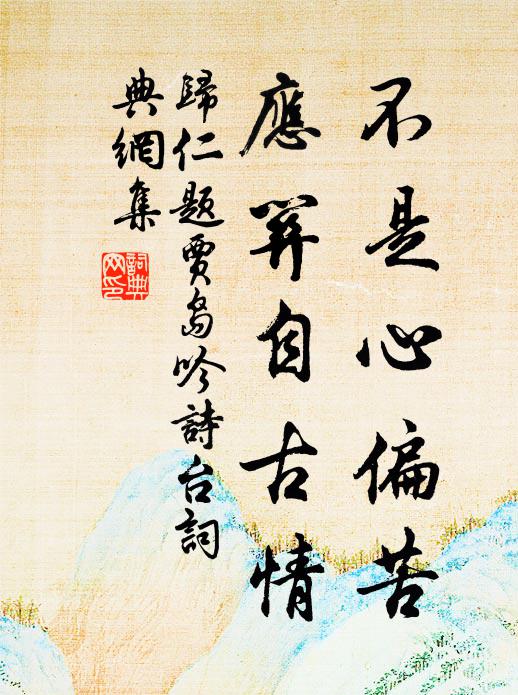 不是心偏苦
應筭自古情
歸仁題賈島吟詩台詞
典網集
詞典
网印